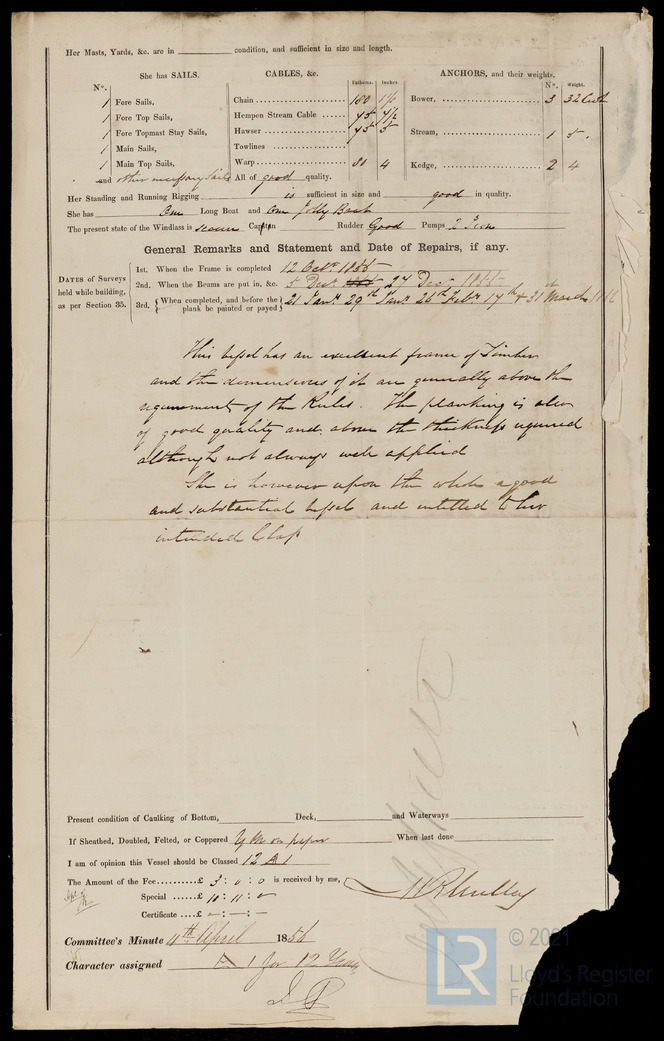 Her Masts, Yards, &c. are in condition, and sufficient in size and length.
She has SAILS. CABLES, &c. Fathoms. Inches. ANCHORS, and their weights. Nº. Weight.
Nº.
1 Fore Sails, Chain 180 Bower, 3 32
1 Fore Top Sails, Hempon Stream Cable
1 Fore Topmast Stay Sails, Hawser Stream, 1 5.
1 Main Sails, Towlines
1 Main Top Sails, Warp 80 4 Kedge, 2 4
and other necessary Sails All of good quality.
Her Standing and Running Rigging is sufficient in size and good in quality.
She has One Long Boat and One Jolly Boat
The present state of the Windlass is Capstan Rudder Good Pumps 2 Iron
General Remarks and Statement and Date of Repairs, if any.
DATES of Surveys held while building, as per Section 35.
1st. When the Frame is completed 12 Octr. 1855
2nd. When the Beams are put in, &c. 5 Decr 27 Decr 1855
3rd. {When completed, and before the plank be painted or payed} 21 Jany. 29th Jany. 26th Feby. 17th & 31st March
This vessel has an excellent frame of Timber
and the dimensions of it are generally above the
requirement of the Rules. The planking is also
of good quality and above the thickness required
although not always well applied
She is however upon the whole a good
and substantial vessel and entitled to her
intended Class
Present condition of Caulking of Bottom, Deck, and Waterways
If Sheathed, Doubled, Felted, or Coppered Y M on paper When last done
I am of opinion this Vessel should be Classed 12 A 1
The Amount of the Fee £ 3 : 0 : 0 is received by me,
Special £ 10 : 11 : 0
Certificate £ - : - : -
Committee's Minute 11th April 1856
Character assigned 1 for 12 Years
LR
© 2021
Lloyd's Register
Foundation